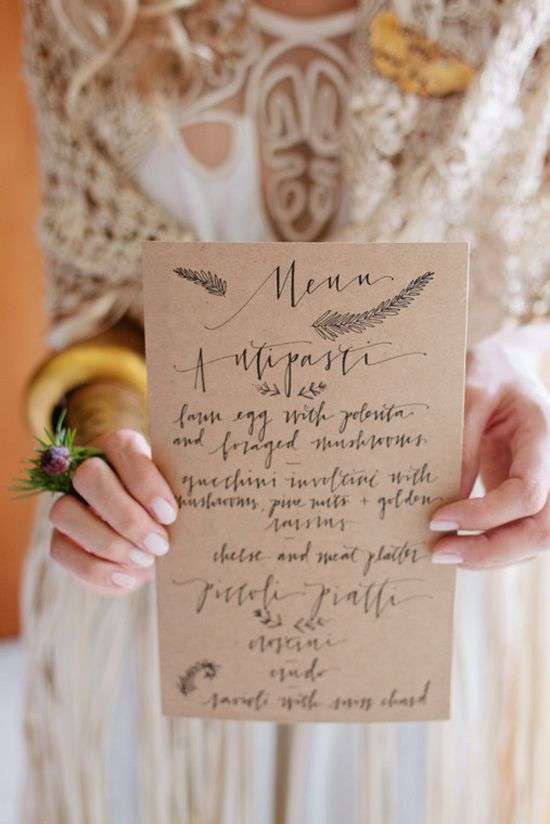 Menu
Antipasti
farm egg with polenta
and foraged mushrooms
gucchini involtini with
mushrooms, pine nuts + golden
raisins
cheese and meat platter
piccoli piatti
crostini
crudo
ravioli with swiss chard